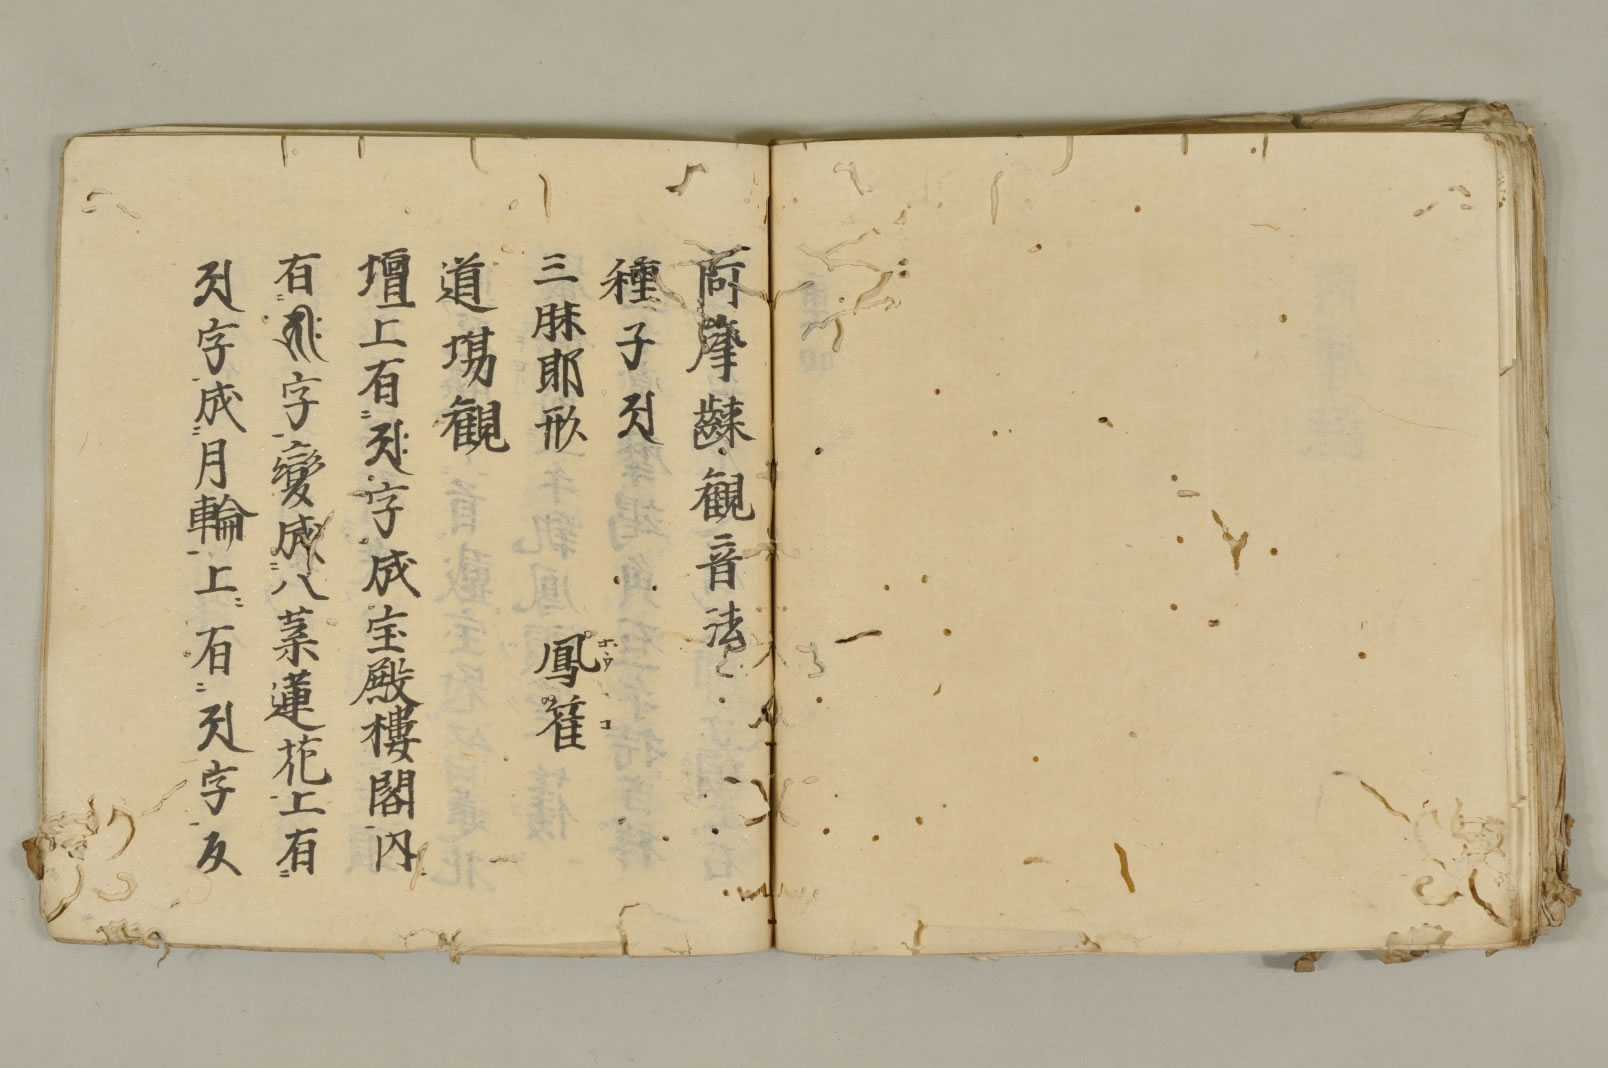 阿摩観音法
種子
三昧耶形 鳳
ホウ コ
道場観
壇上有字成宝殿樓閣内
有字變成八葉蓮花上有
字成月輪上有字反